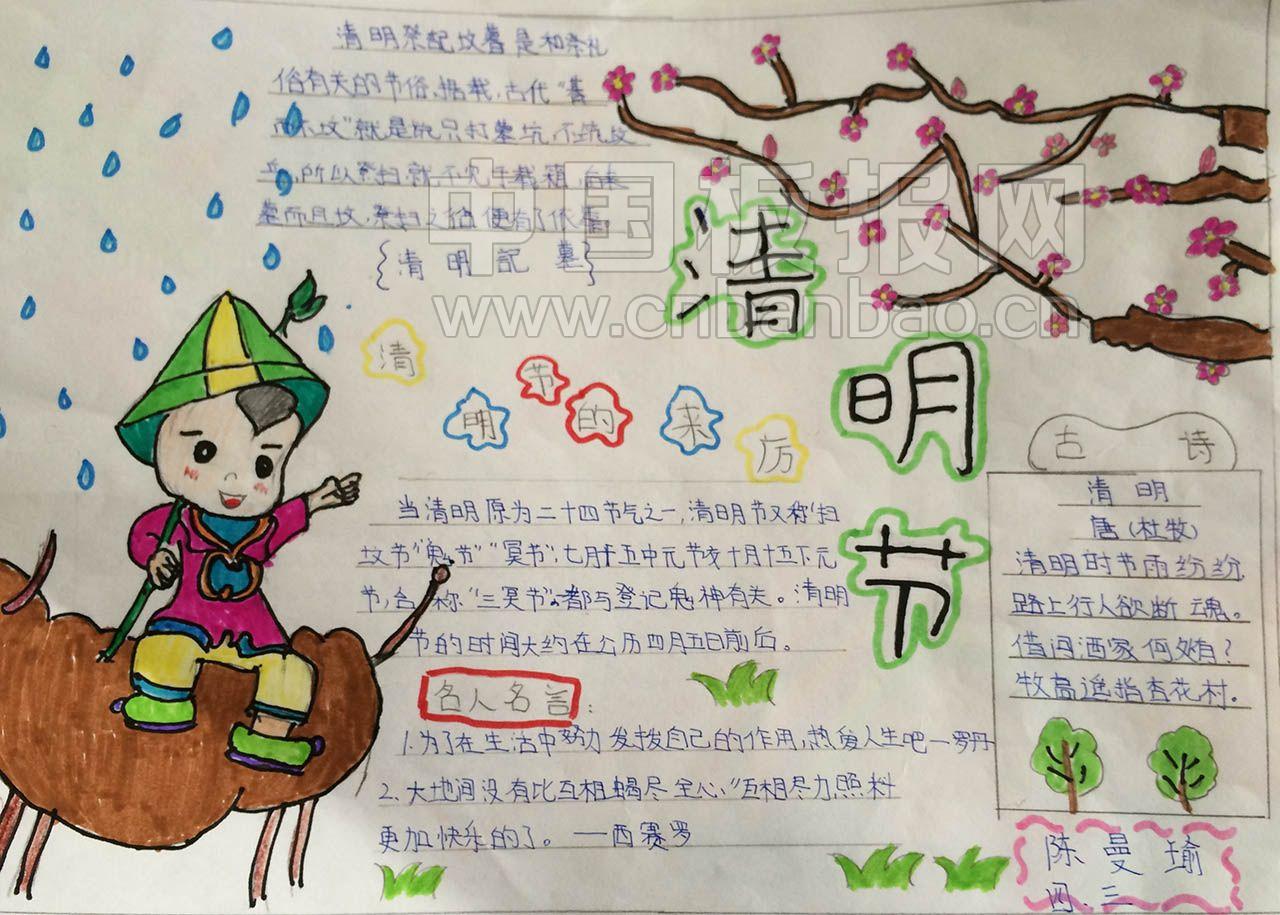 清明祭配坟暮是和祭礼
俗有关的节俗,据载,古代“墓
而不坟”就是说只打墓坑,不筑坟
丘,所以祭扫就不见于载籍,后来
墓而且坟,祭扫之俗便有了依
{清明記墓}
中国板报网
www.cnbanbao.cn
清明节
清明节的来厉
当清明原为二十四节气之一,清明节又称“扫
坟节”“鬼节”“冥节”,七月十五中元节十月十五下元
节,合称“三冥节”。都与登记鬼神有关。清明
节的时间大约在公历四月五日前后。
名人名言:
1.为了在生活中努力发拨自己的作用,热爱人生吧一罗丹
2.大地间没有比互相蝎尽全心、“互相尽力照料
更加快乐的了。——西赛罗
古诗
清明
唐(杜牧)
清明时节雨纷纷
路上行人欲断魂。
借问酒家何处有?
牧高遥指杏花村。
陈曼瑜
四.三